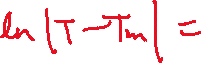 ln |T - Tm| =